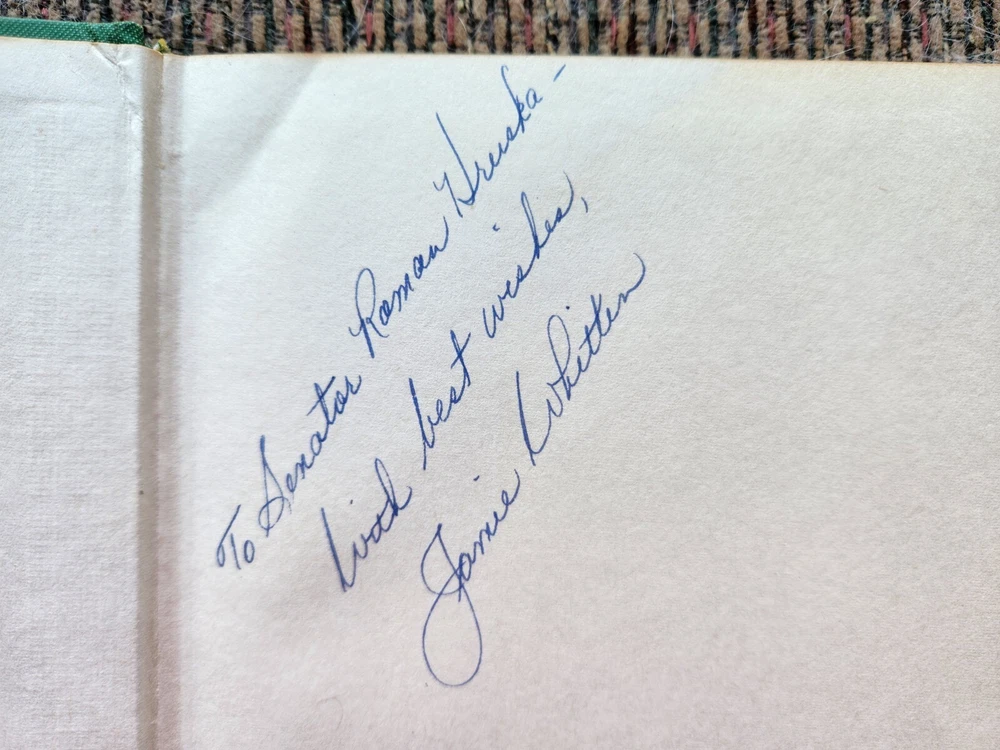 To Senator Roman Hruska -
With best wishes,
Jamie Whitten